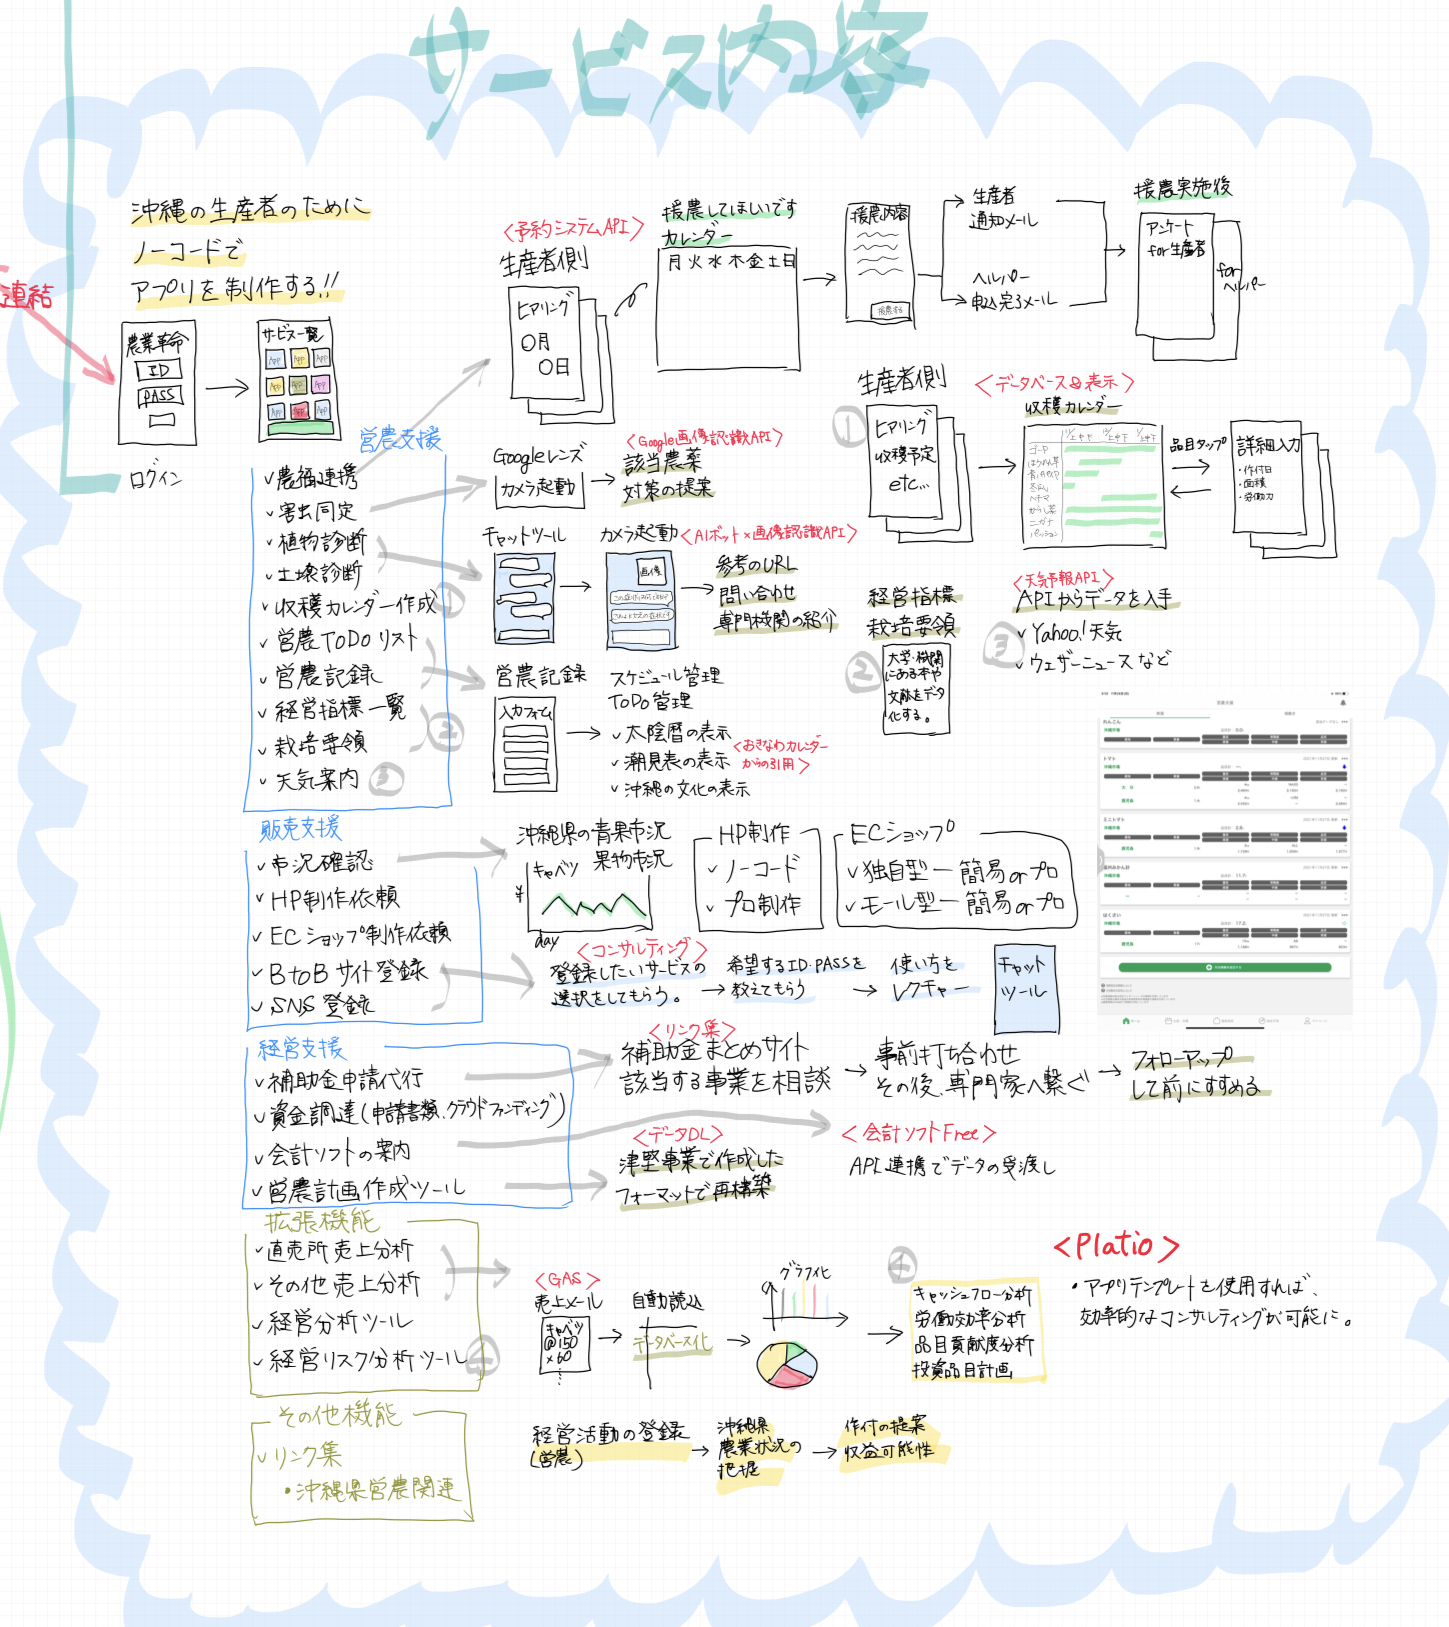 サービス内容
沖縄の生産者のために
ノーコードで
アプリを制作する!!
連結
農業革命
ID
PASS
ログイン
サービス一覧
App App App
App App App
App App App
営農支援
✓農福連携
✓害虫同定
✓植物診断
✓土壌診断
✓収穫カレンダー作成
✓営農ToDoリスト
✓営農記録
✓経営指標一覧
✓栽培要領
✓天気案内
①
②
③
<予約システムAPI>
生産者側
ヒアリング
○月
○日
援農してほしいです
カレンダー
月火水木金土日
援農内容
援農する
生産者
通知メール
ヘルパー
申込完了メール
援農実施後
アンケート
for生産者
for
ヘルパー
Googleレンズ
カメラ起動
<Google画像認識API>
該当農薬
対策の提案
チャットツール
カメラ起動
<AIボット×画像認識API>
画像
参考のURL
問い合わせ
専門機関の紹介
営農記録
入力フォーム
スケジュール管理
ToDo管理
✓太陰暦の表示
✓潮見表の表示
✓沖縄の文化の表示
<おきなわカレンダー
からの引用>
①
生産者側
ヒアリング
収穫予定
etc...
<データベース&表示>
収穫カレンダー
上中下 上中下 上中下
ゴーヤ
ヘチマ
からし菜
ニガナ
パッション
品目タップ
詳細入力
・作付日
・面積
・労働力
経営指標
栽培要領
②
大学・機関
にある本や
文献をデータ
化する。
<天気予報API>
APIからデータを入手
③
✓Yahoo!天気
✓ウェザーニュースなど
れんこん
トマト
ミニトマト
はくさい
販売支援
✓市況確認
✓HP制作依頼
✓ECショップ制作依頼
✓BtoBサイト登録
✓SNS登録
沖縄県の青果市況
果物市況
キャベツ
¥
day
HP制作
✓ノーコード
✓プロ制作
ECショップ
✓独自型ー簡易orプロ
✓モール型ー簡易orプロ
<コンサルティング>
登録したいサービスの
選択をしてもらう。
希望するID・PASSを
教えてもらう
使い方を
レクチャー
チャット
ツール
経営支援
✓補助金申請代行
✓資金調達(申請書類、クラウドファンディング)
✓会計ソフトの案内
✓営農計画作成ツール
<リンク集>
補助金まとめサイト
該当する事業を相談
事前打ち合わせ
その後、専門家へ繋ぐ
フォローアップ
して前にすすめる
<データDL>
津堅事業で作成した
フォーマットで再構築
<会計ソフトFree>
API連携でデータの受渡し
拡張機能
✓直売所売上分析
✓その他売上分析
✓経営分析ツール
✓経営リスク分析ツール
④
<GAS>
売上メール
キャベツ
@150
×60
自動読込
データベース化
グラフ化
④
キャッシュフロー分析
労働効率分析
品目貢献度分析
投資品目計画
<Platio>
・アプリテンプレートを使用すれば、
効率的なコンサルティングが可能に。
その他機能
✓リンク集
・沖縄県営農関連
経営活動の登録
(営農)
沖縄県
農業状況の
把握
作付の提案
収益可能性